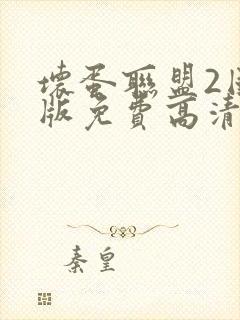 壞蛋聯盟2
版免費高清
秦皇